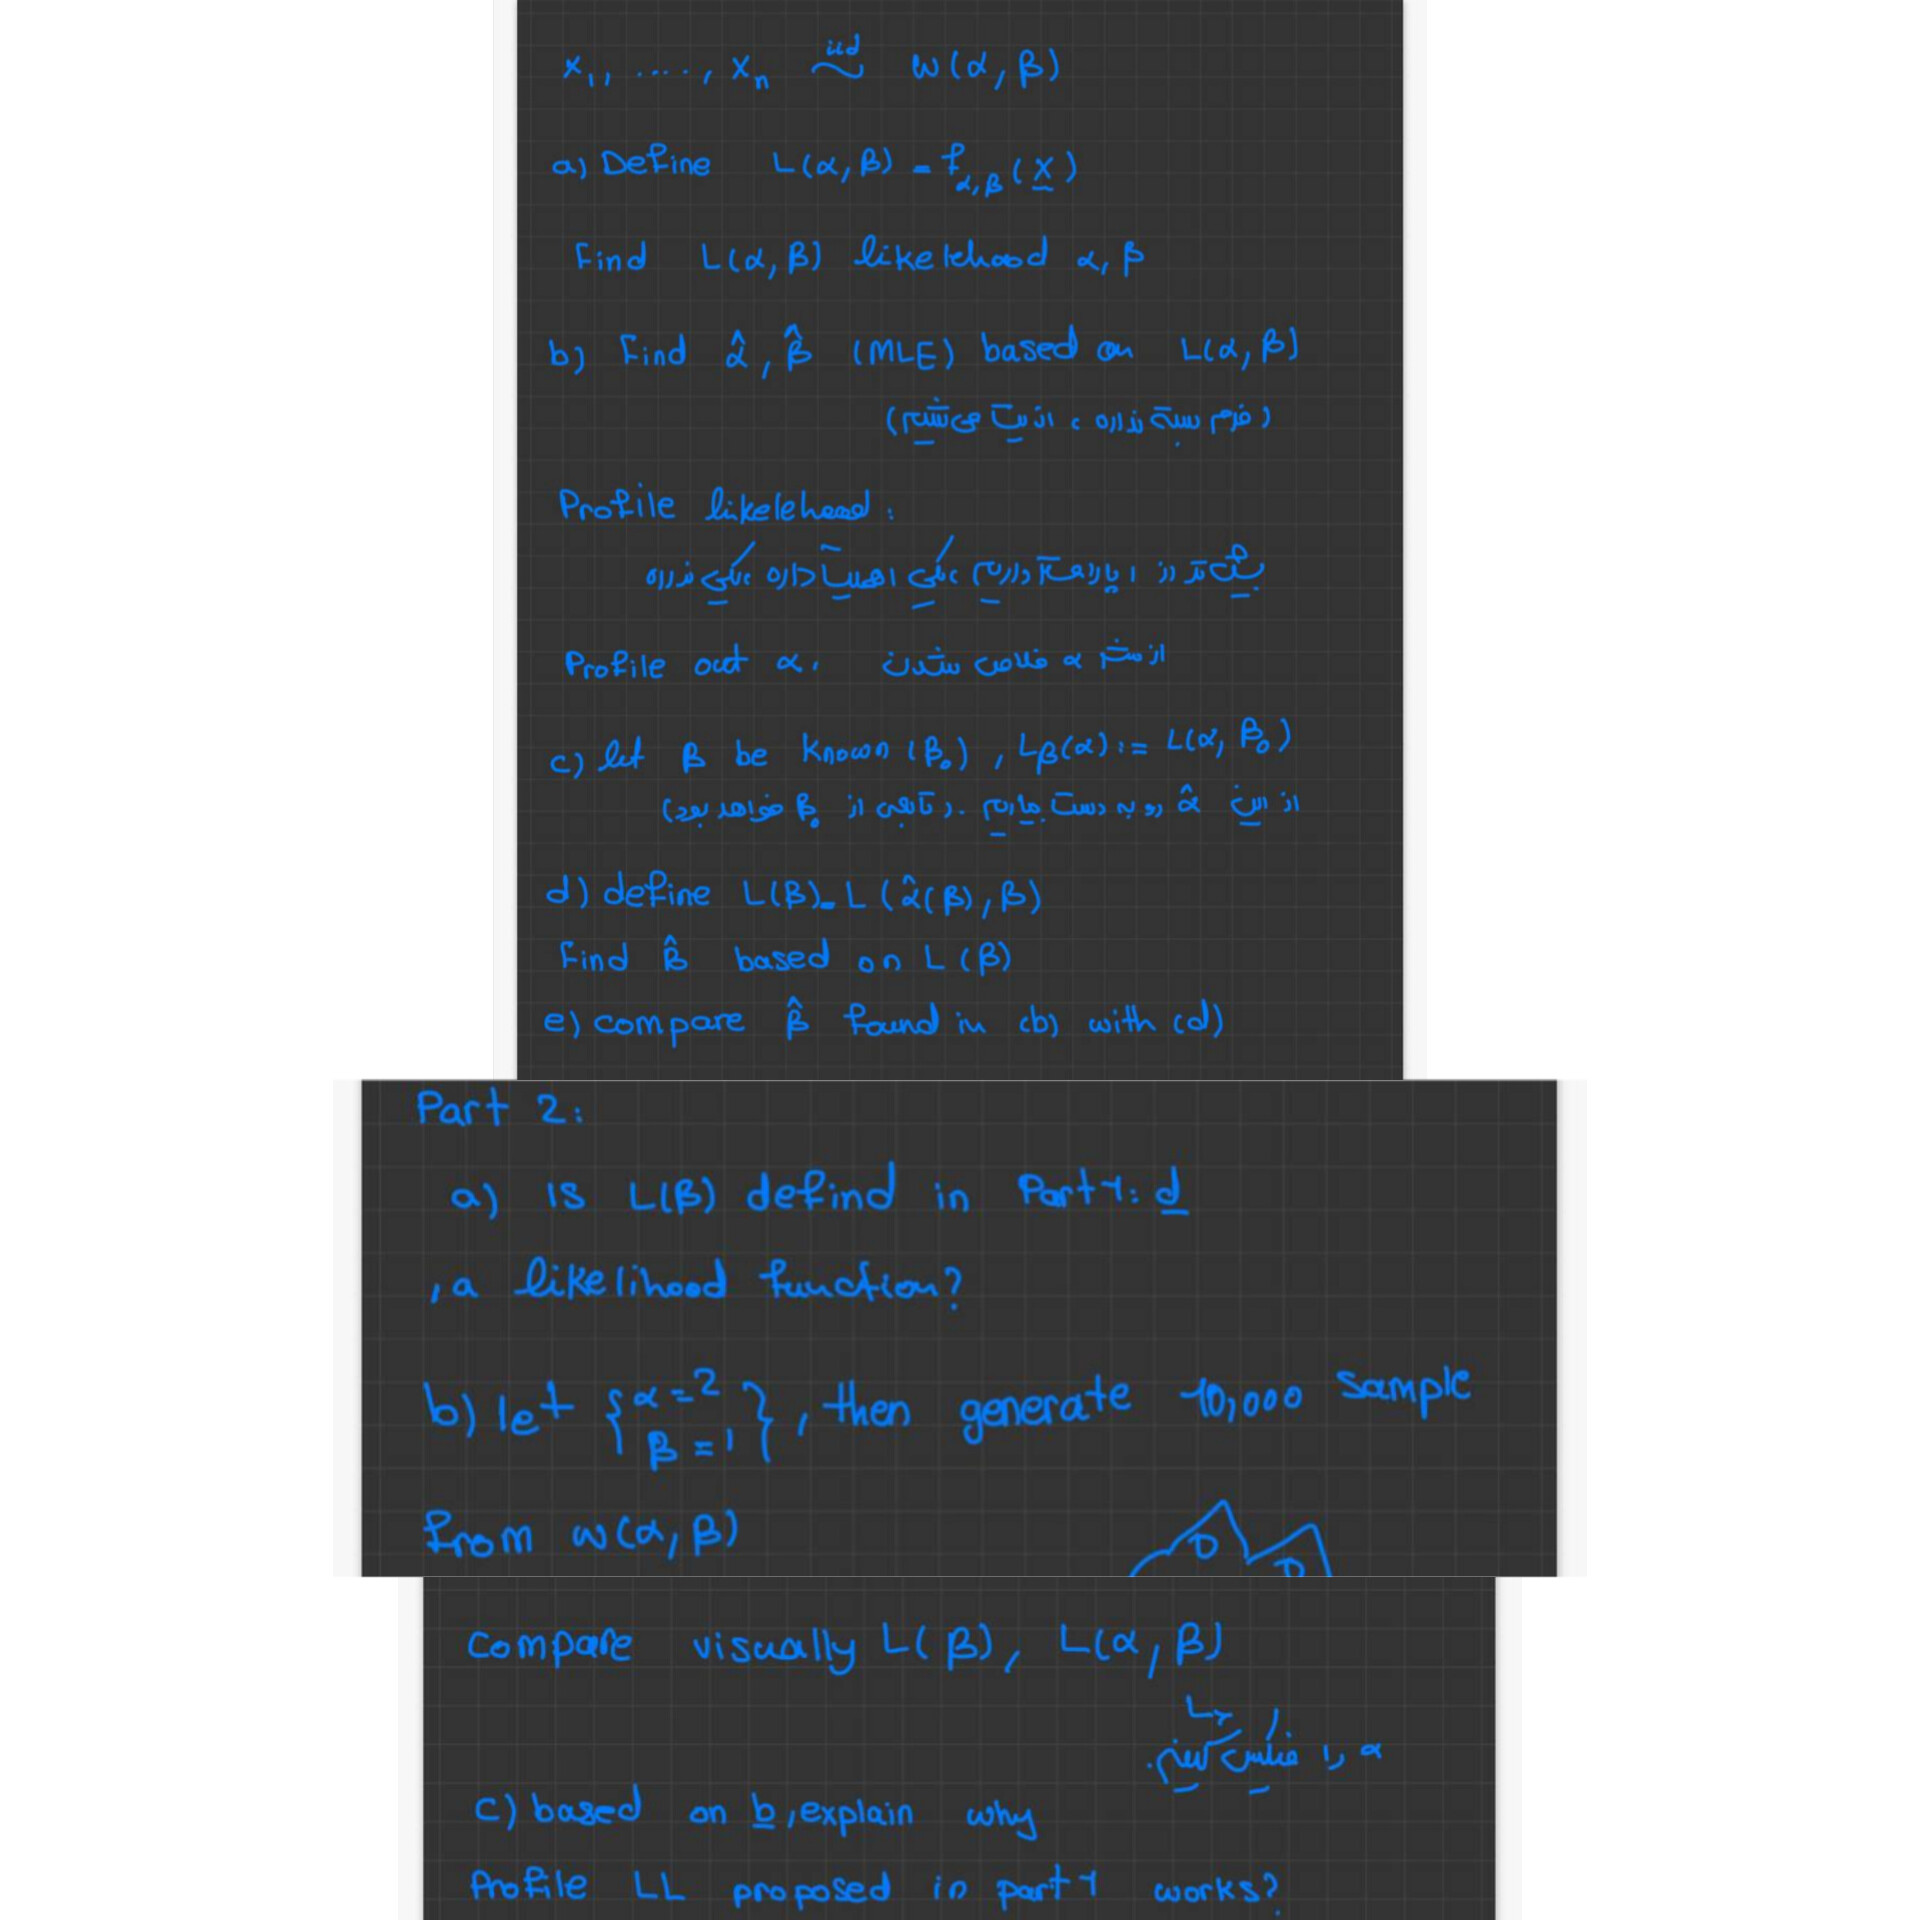 x₁, ...., xₙ iid ~ W(α, β)
a) Define L(α, β) = f α,β (x)
Find L(α, β) likelehood α, β
b) Find α̂, β̂ (MLE) based on L(α, β)
(فرم بسته نداره ،
Profile likelehood:
بیش تر از ۱ پارامتر داریم یکی اهمیت داره یکی نداره
Profile out α, از شر α خلاص شدن
c) let β be known (β₀), Lβ(α) := L(α, β₀)
از این α̂ رو به دست میاریم. (تابعی از β₀ خواهد بود)
d) define L(β) = L(α̂(β), β)
Find β̂ based on L(β)
e) compare β̂ found in (b) with (d)
Part 2:
a) is L(β) defind in Part 1: d
, a likelihood function?
b) let {α = 2 β = 1}, then generate 10,000 sample
from W(α, β)
compare visually L(β), L(α, β)
α را فیکس کنیم.
c) based on b, explain why
Profile LL proposed in part 1 works?